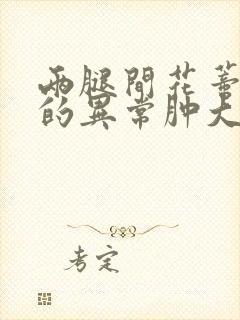 两腿間花蒂
的異常肿大
考定